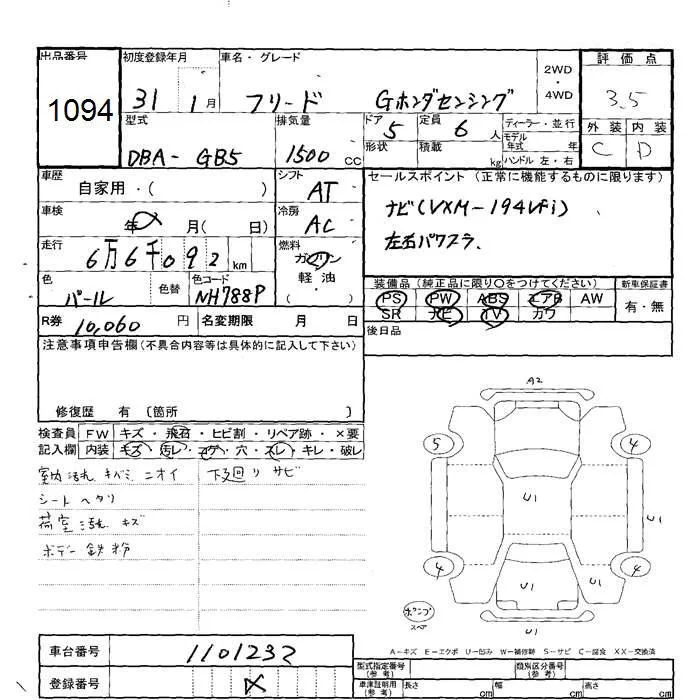 出品番号 1094
初度登録年月 31 1月
車名・グレード フリード Gホンダセンシング
2WD 4WD
評価点 3.5
外装 C 内装 D
型式 DBA-GB5
排気量 1500cc
ドア 5 定員 6人
形状 積載 kg
ディーラー・並行
モデル年式 年
ハンドル 左・右
車歴 自家用・( )
シフト AT
車検 年 月( 日)
冷房 AC
走行 6万6千092km
燃料 ガソリン 軽油 ・( )
色 パール 色替 色コード NH788P
R券 10,060円 名変期限 月 日
セールスポイント(正常に機能するものに限ります)
ナビ(VXM-194VFi)
左右パワスラ.
装備品(純正品に限り○をつけてください) 新車保証書
PS PW ABS エアB AW 有・無
SR ナビ TV カワ
後日品
注意事項申告欄(不具合内容等は具体的に記入して下さい)
修復歴 有〔箇所 〕
検査員 FW キズ・飛石・ヒビ割・リペア跡・×要
記入欄 内装 キズ・汚レ・コゲ・穴・スレ・キレ・破レ
室内汚れ キバミ ニオイ 下廻り サビ
シート ヘタリ
荷室汚れ キズ
ボデー 鉄粉
A2
5 4
U1
U1
4 4
U1 U1
ポンプ
スペア
U1
A-キズ E-エクボ U-凹み W-補修跡 S-サビ C-腐食 XX-交換済
車台番号 1101232
登録番号
型式指定番号(参考) 類別区分番号(参考)
車庫証明用(参考) 長さ cm 幅 cm 高さ cm